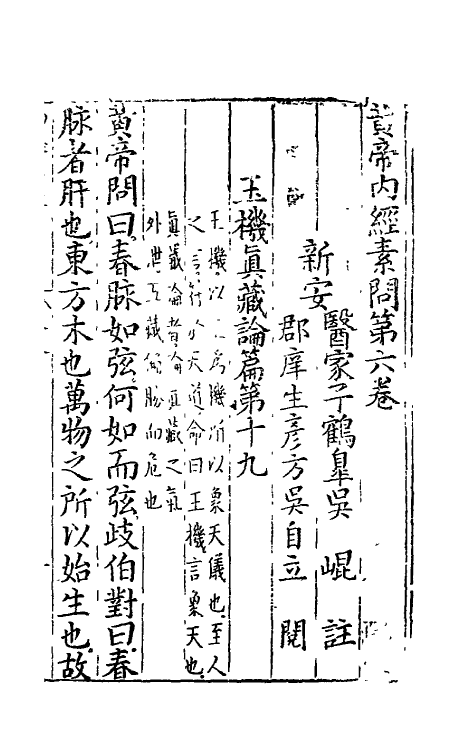 黃帝內經素問第六卷
新安
醫家子鶴皐吳 崐 註
郡庠生彥方吳自立 閱
玉機眞藏論篇第十九
玉機以 爲機所以象天儀也至人
之言行 天道命曰玉機言象天也
眞藏論者論眞藏之氣
外泄五藏 勝而危也
黃帝問曰春脉如弦何如而弦歧伯對曰春
脉者肝也東方木也萬物之所以始生也故